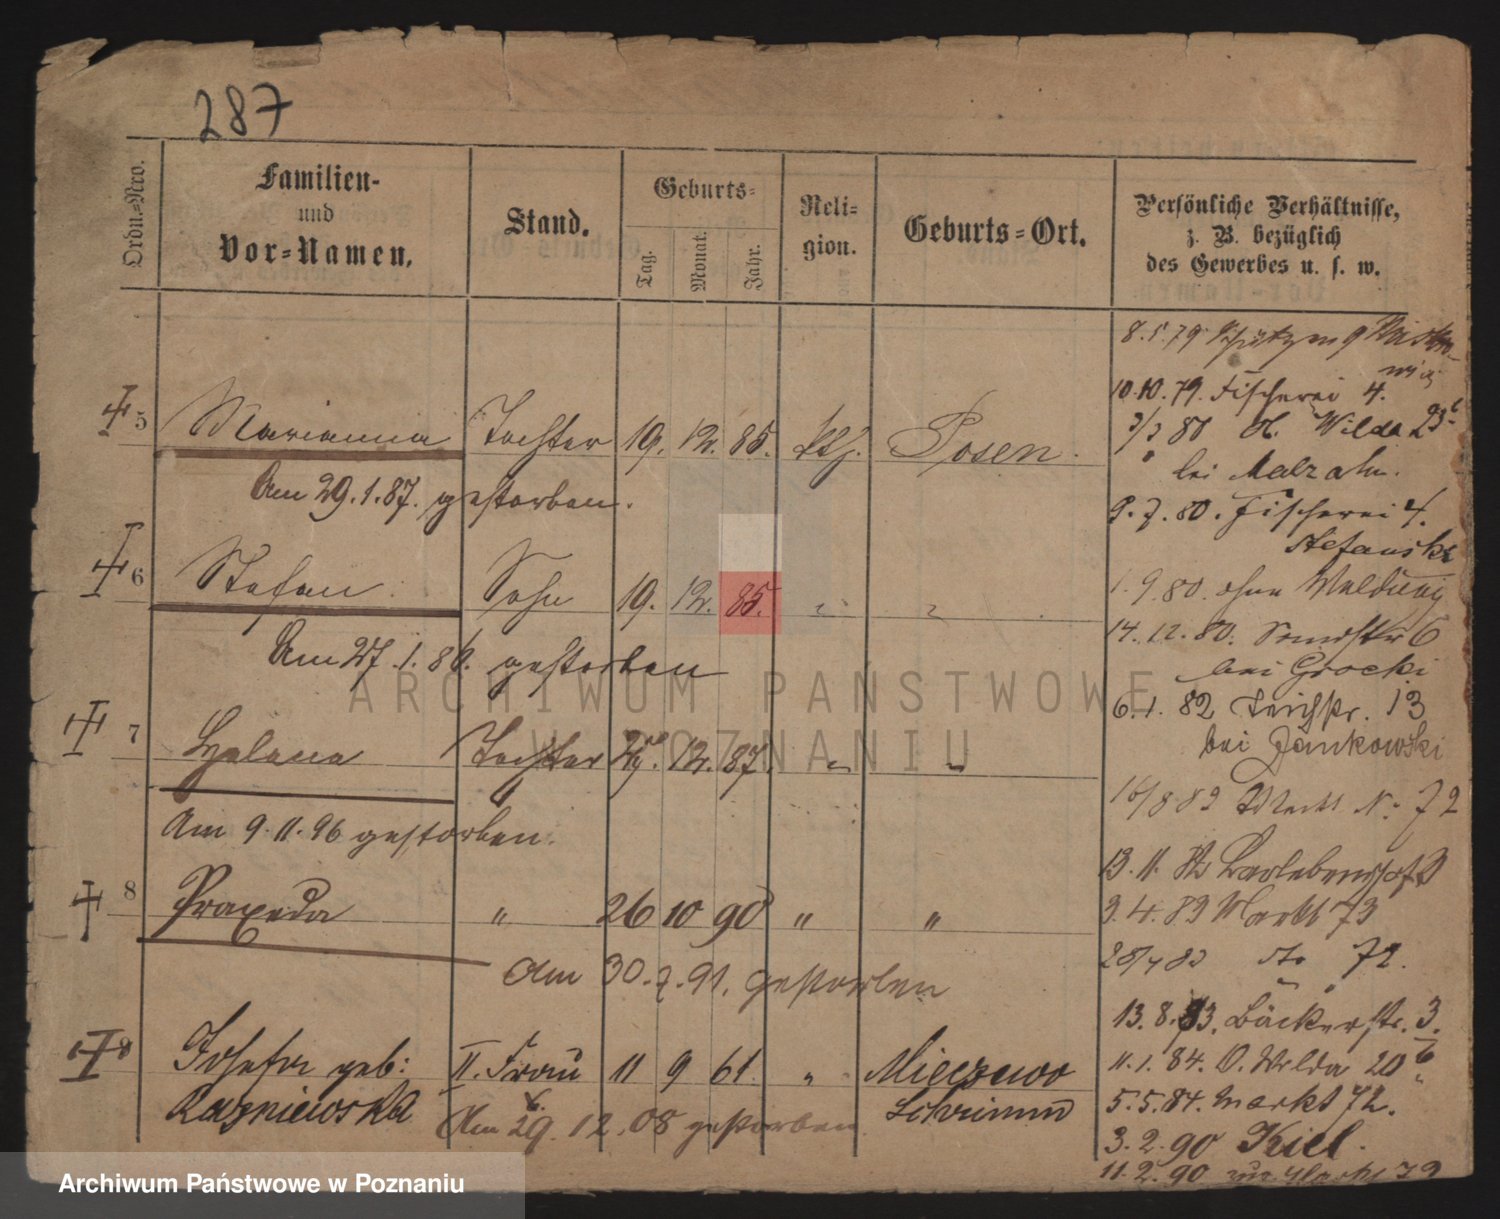 287
Ordn.=Nro.
Familien-
und
Vor=Namen.
Stand.
Geburts=
Tag.
Monat.
Jahr.
Reli=
gion.
Geburts=Ort.
Persönliche Verhältnisse,
z. B. bezüglich
des Gewerbes u. s. w.
5 Marianna Tochter 19. 12. 85. kth. Posen.
Am 29.1.87. gestorben.
6 Stefan Sohn 19. 12. 85. " "
Am 27.1.86. gestorben
7 Helena Tochter 12. 87. " "
Am 9.11.96 gestorben.
8 Praxeda " 26 10 90 " "
Am 30.7.91. gestorben
9 Josefa geb: II. Frau 11 9 61 " Mieczewo
Kazniewska Schrimm
Am 29.12.08 gestorben
8.5.79
10.10.79. Fischerei 4.
3/3 80 O. Wilda 23
bei Malzahn.
9.7.80. Fischerei 4.
Stefanski
1.9.80. ohne Meldung
14.12.80. 6
bei Grocki
6.1.82 Teichstr. 13
bei Jankowski
16/8 82 Markt No 72
13.11.82
3.4.83 Markt 73
28/4 83 dto 72.
13.8.83. Bäckerstr. 3.
11.1.84. O. Wilda 20
5.5.84. Markt 72.
3.2.90 Kiel.
11.2.90 Markt 72
ARCHIWUM PAŃSTWOWE
W POZNANIU
Archiwum Państwowe w Poznaniu